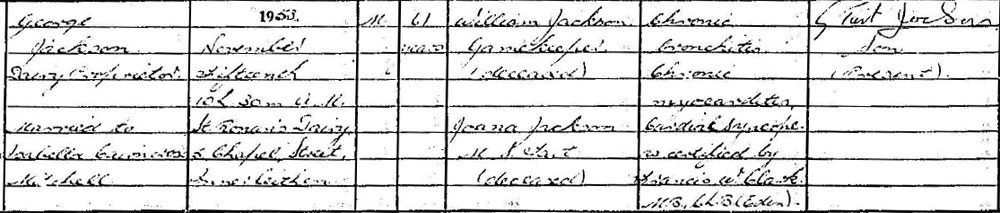 George
Jackson
Dairy Proprietor
Married to
Isabella Cairncross
Mitchell
1953.
November
Fifteenth
10h. 30m A.M.
St Ronan's Dairy,
Chapel Street,
Innerleithen
M
61
years
William Jackson
Gamekeeper
(deceased)
Joana Jackson
M. S.
(deceased)
Chronic
Bronchitis
Chronic
myocarditis,
Cardiac Syncope.
as certified by
Francis W. Clark
M.B., Ch.B (Edin).
Jackson
Son
(Present).